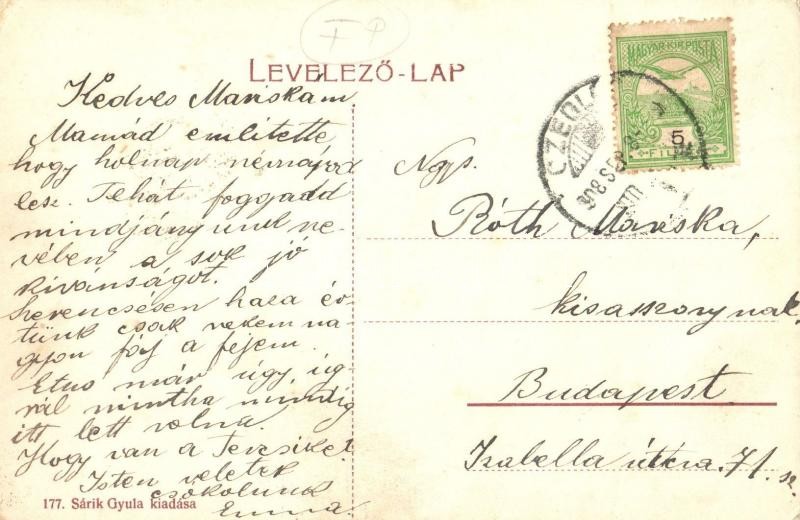 FP
LEVELEZŐ-LAP
Kedves Mariskám
Mamád emlitette
hogy holnap névnapod
lesz. Tehát fogadd
mindjányunk ne-
vében a sok jó
kivánságot.
Szerencsésen haza ér-
tünk csak nekem na-
gyon fáj a fejem.
Etus már úgy ug-
rál mintha mindig
itt lett volna.
Hogy van a Tercsike?
Isten veletek
csókolunk
Emma.
177. Sárik Gyula kiadása
MAGYAR KIR. POSTA
5
FILL
CZEGL
908 SE
Ngs.
Róth Mariska,
kisasszonynak
Budapest
Izabella útcza 71. sz.